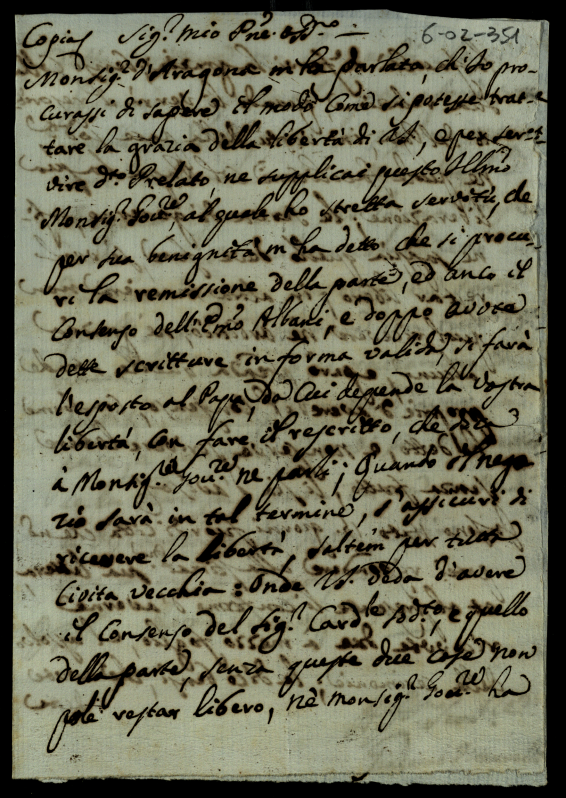 6-02-351
Copia Sig.r mio P.ne oss.mo
Monsig.r d'Aragona m'ha parlato, ch'io pro-
curassi di sapere il modo come si potesse trat-
tare la grazia della libertà di VS, e per ser-
vire d.to Prelato, ne supplicai questo Ill.mo
Monsig.r Gov.re, al quale ho stretta servitù, che
per sua benignità m'ha detto che si procu-
ri la remissione della parte, ed anco il
Consenso dell'Em.o Albani, e doppo avute
dette scritture in forma valida, si farà
l'esposto al Papa, da Cui depende la Vostra
libertà, con fare il rescritto, che
à Monsig.r Gov.re ne parli; Quando il nego-
zio sarà in tal termine, s'assicuri di
ricevere la libertà, saltem per tutta
Civita vecchia: Onde VS. veda d'avere
il Consenso del Sig.r Card.le sod.to, e quello
della parte, senza queste due cose non
pole restar libero, nè monsig.r Gov.re ha